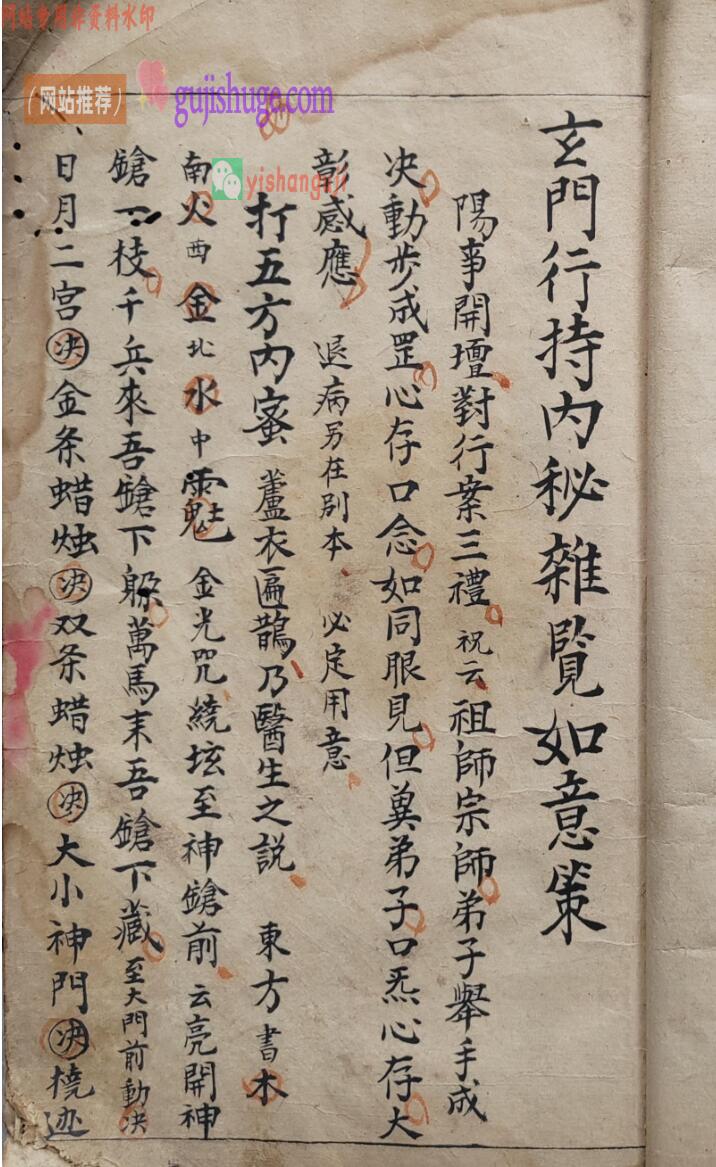 网站专用非资料水印
（网站推荐）
gujishuge.com
yishangji
玄門行持內秘雜覽如意策
陽事開壇對行業三禮祝云祖師宗師弟子舉手成
决動步成罡心存口念如同眼見但奠弟子口炁心存大
彰感應 退病另在别本 必定用意
打五方內蜜 蘆衣匾鵲乃醫生之説 東方書木
南火西金北水中䰱 金光咒繞坛至神鎗前云亮開神
鎗一枝千兵來吾鎗下躲萬馬末吾鎗下藏至大門前動决
日月二宫决金条蜡烛决双条蜡烛决大小神門决撓迹